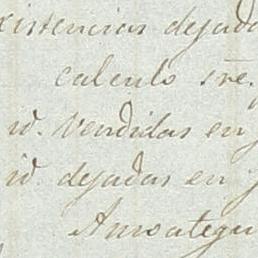 existencias dejada
calculo sre.
id. Vendidas en
id. dejadas en
Amoategui